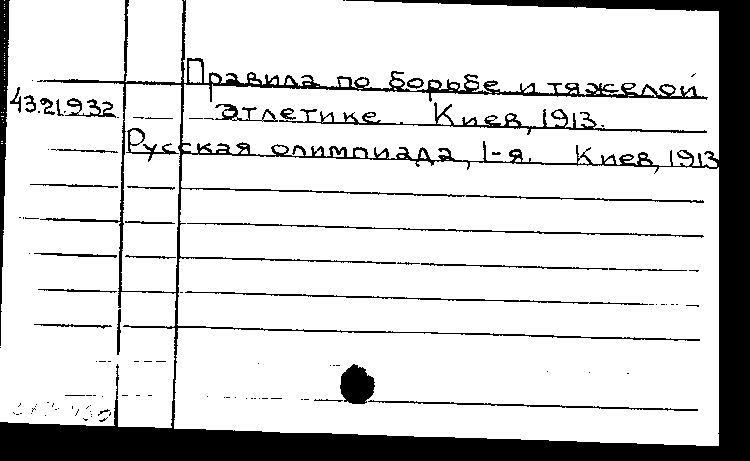 Правила по борьбе и тяжелой
43.21.932 атлетике. Киев, 1913.
Русская олимпиада, 1-я. Киев, 1913